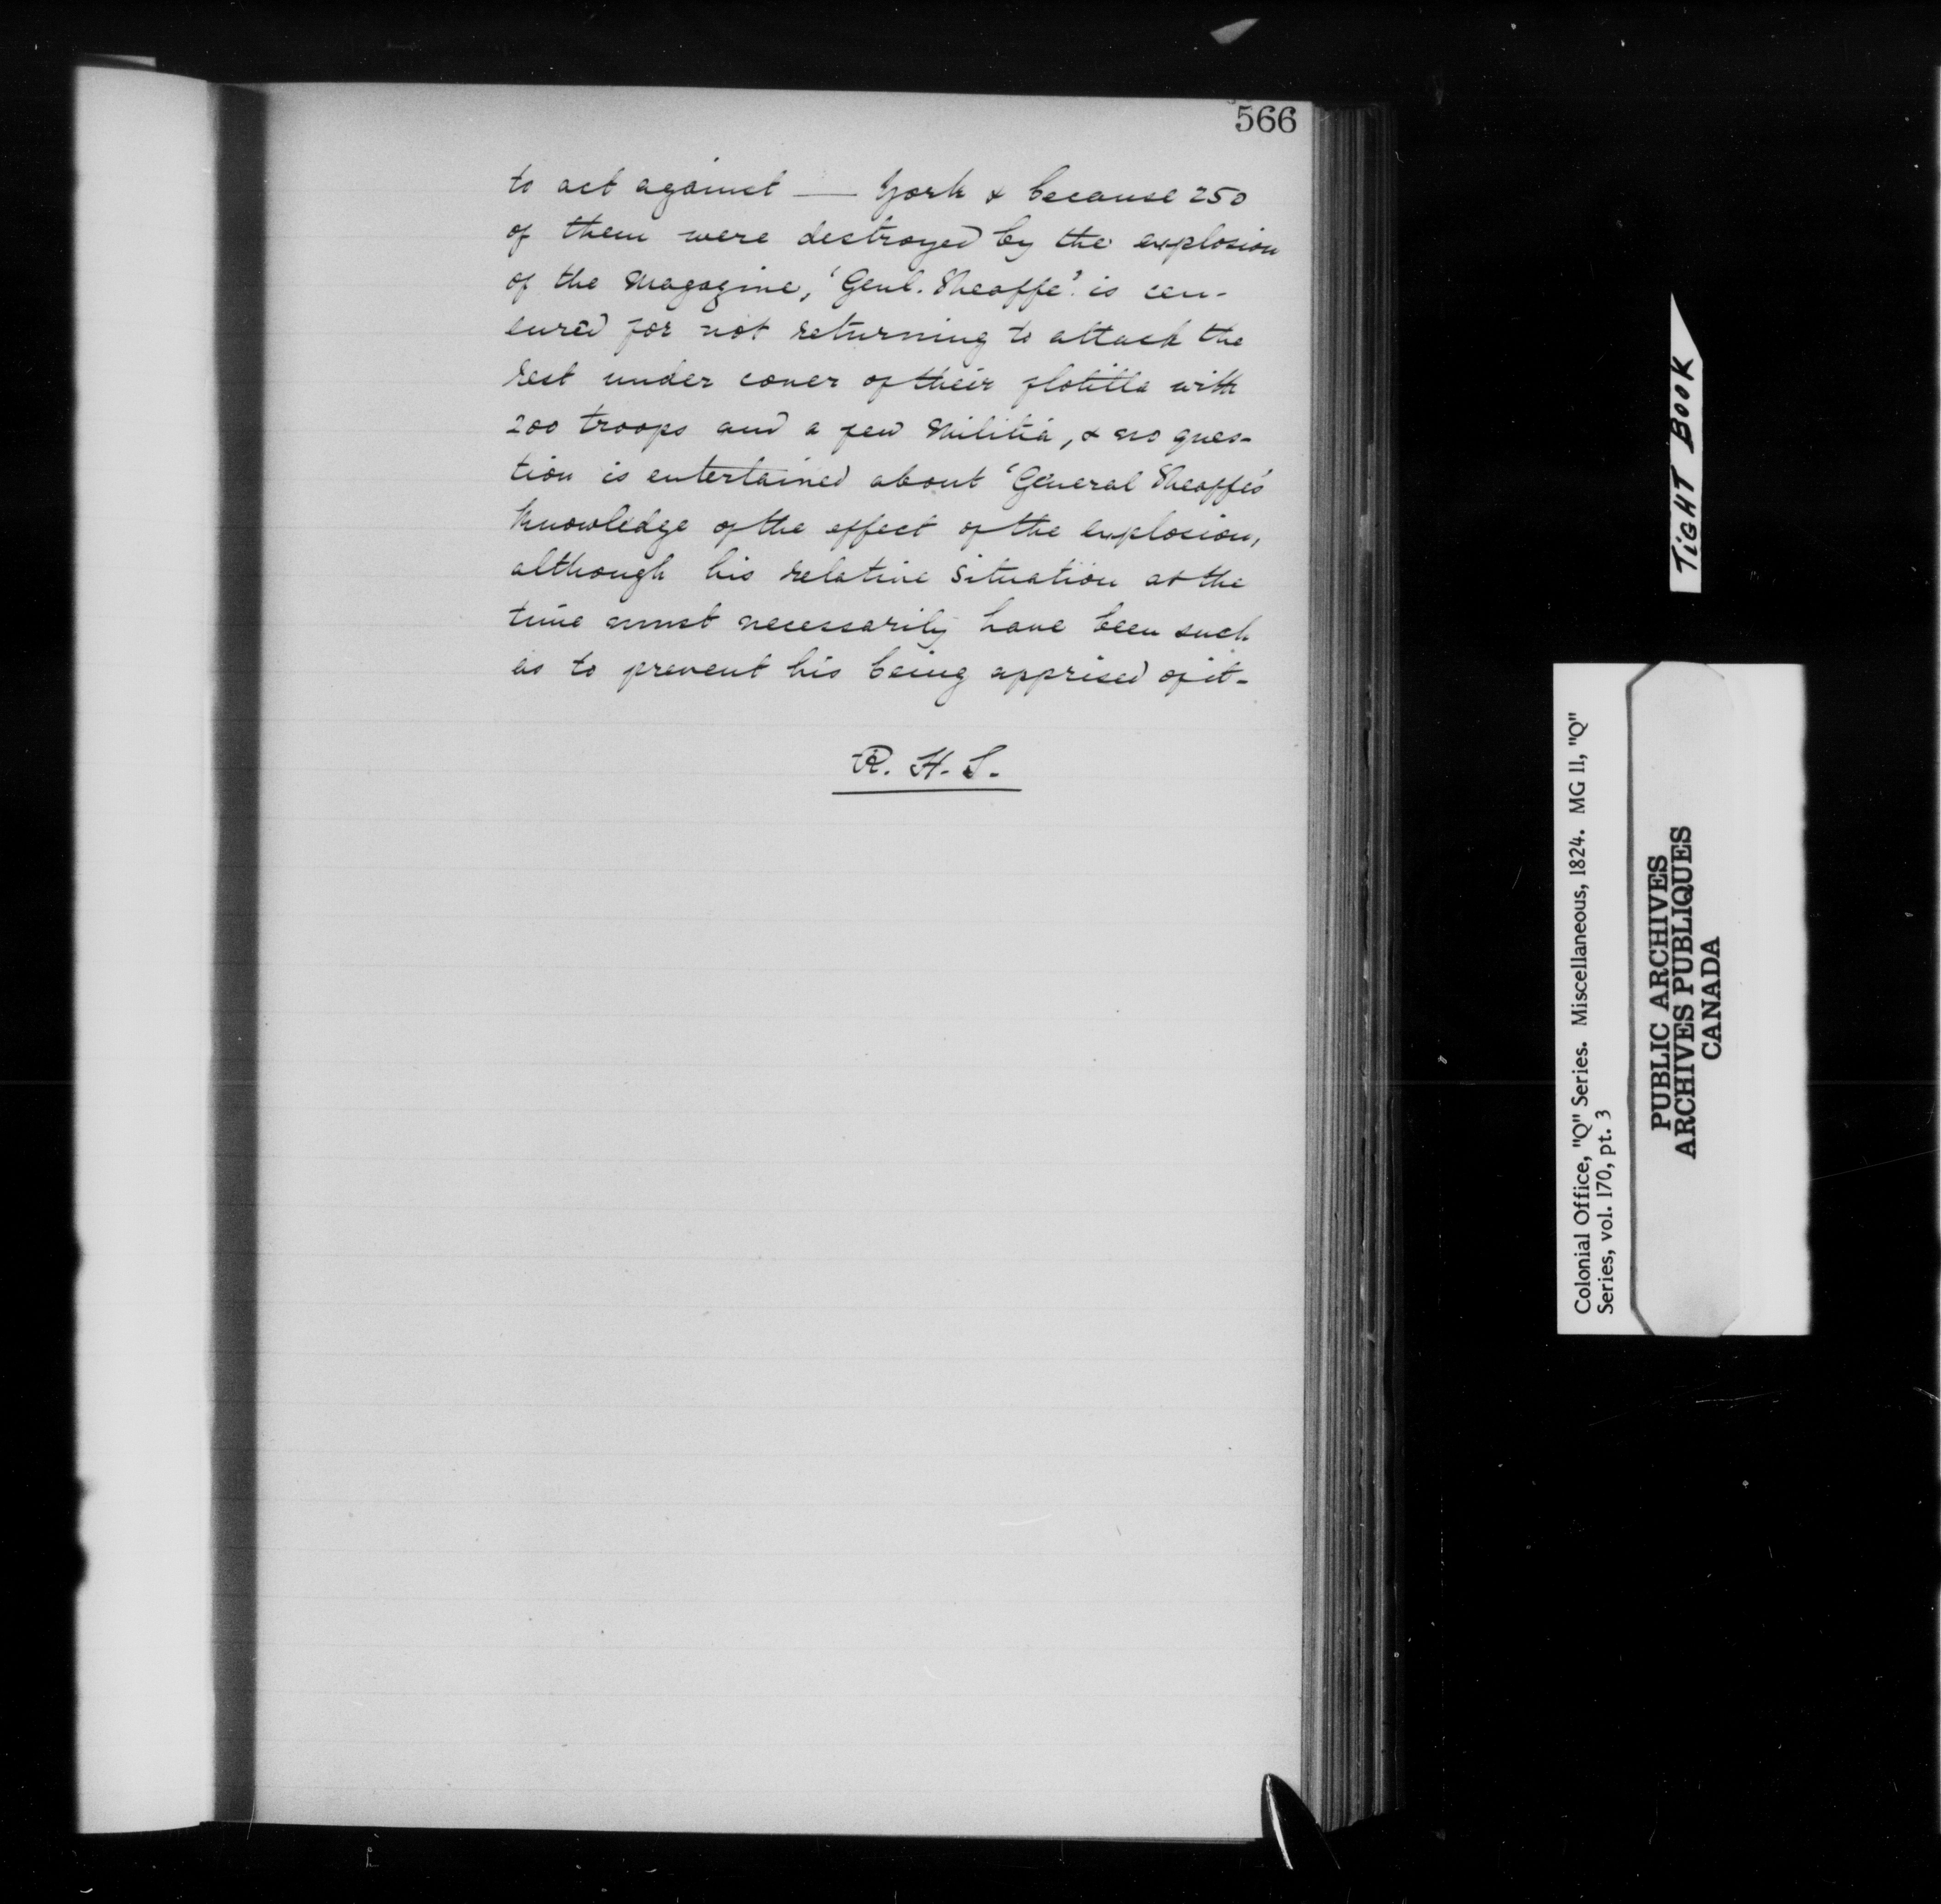 566
to act against — York & because 250
of them were destroyed by the explosion
of the Magazine, 'Genl. Sheaffe' is cen-
sured for not returning to attack the
rest under cover of their flotilla with
200 troops and a few Militia, & no ques-
tion is entertained about 'General Sheaffe's
knowledge of the effect of the explosion,
although his relative situation at the
time must necessarily have been such
as to prevent his being apprised of it-
R. H. S.
TIGHT BOOK
Colonial Office, "Q" Series. Miscellaneous, 1824. MG 11, "Q"
Series, vol. 170, pt. 3
PUBLIC ARCHIVES
ARCHIVES PUBLIQUES
CANADA